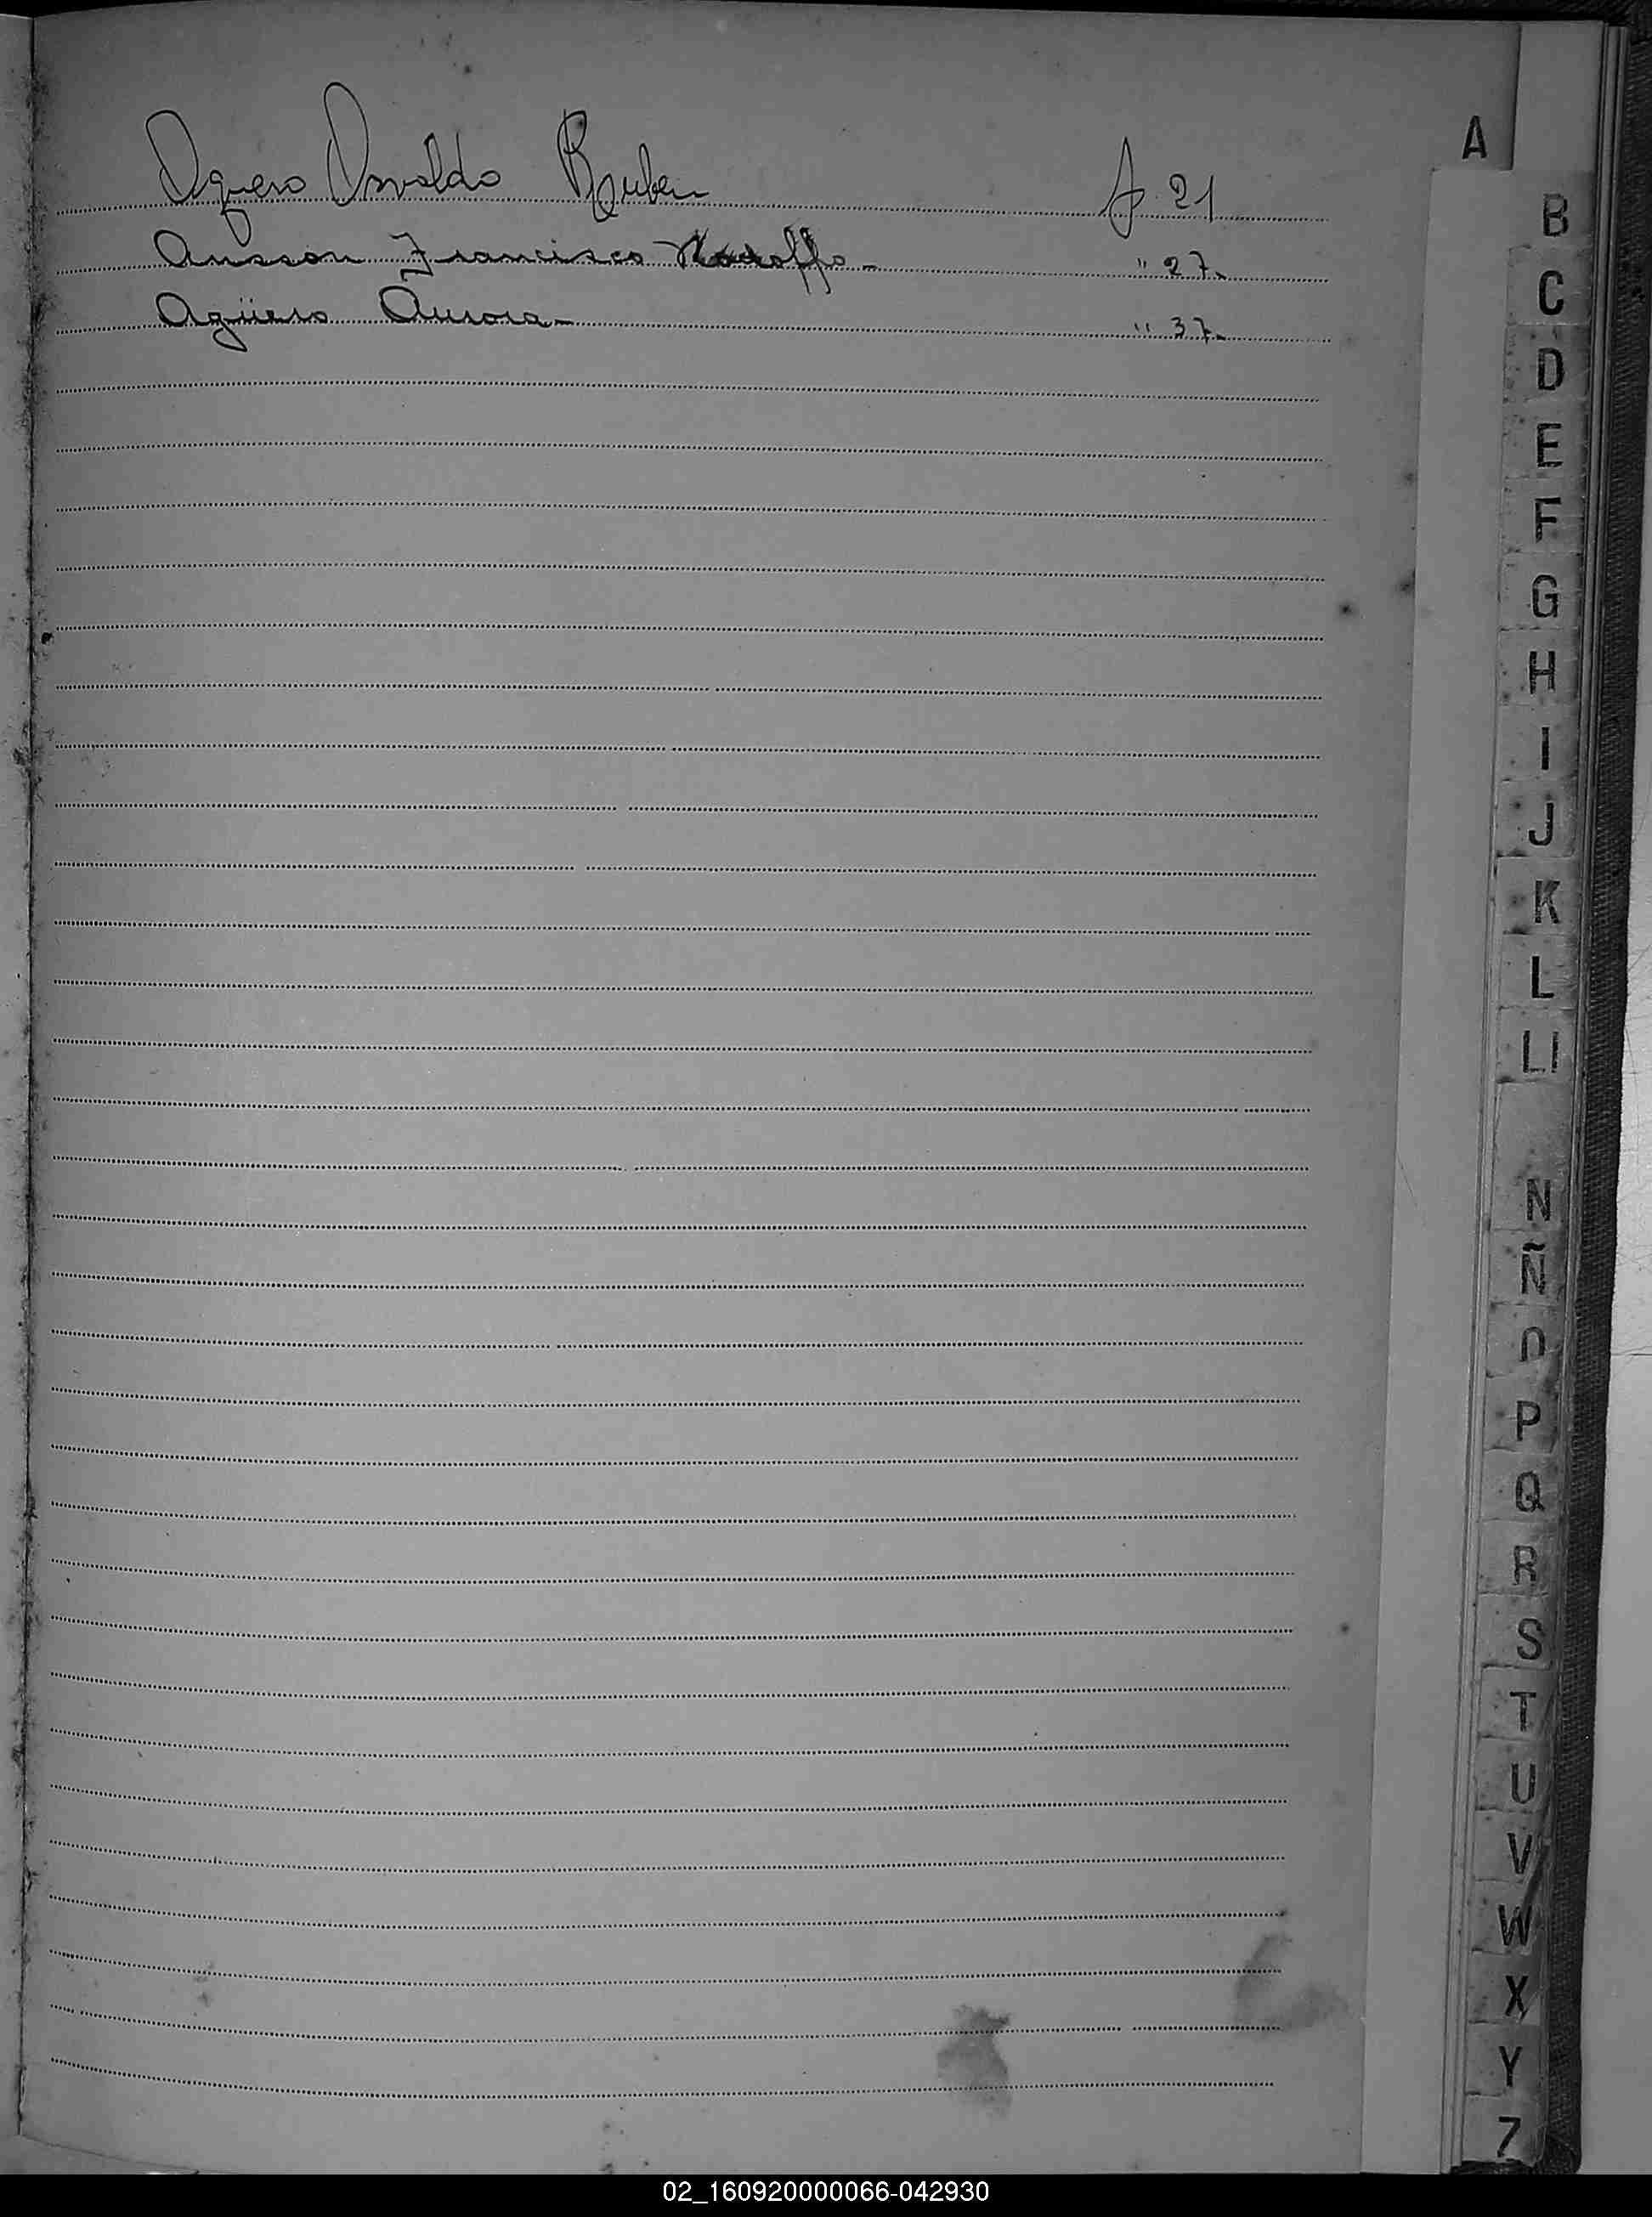 Aguero Osvaldo Ruben f. 21
Ausson Francisco " 27.
Agüero Aurora - " 37.
A
B
C
D
E
F
G
H
I
J
K
L
Ll
N
Ñ
O
P
Q
R
S
T
U
V
W
X
Y
Z
02_160920000066-042930